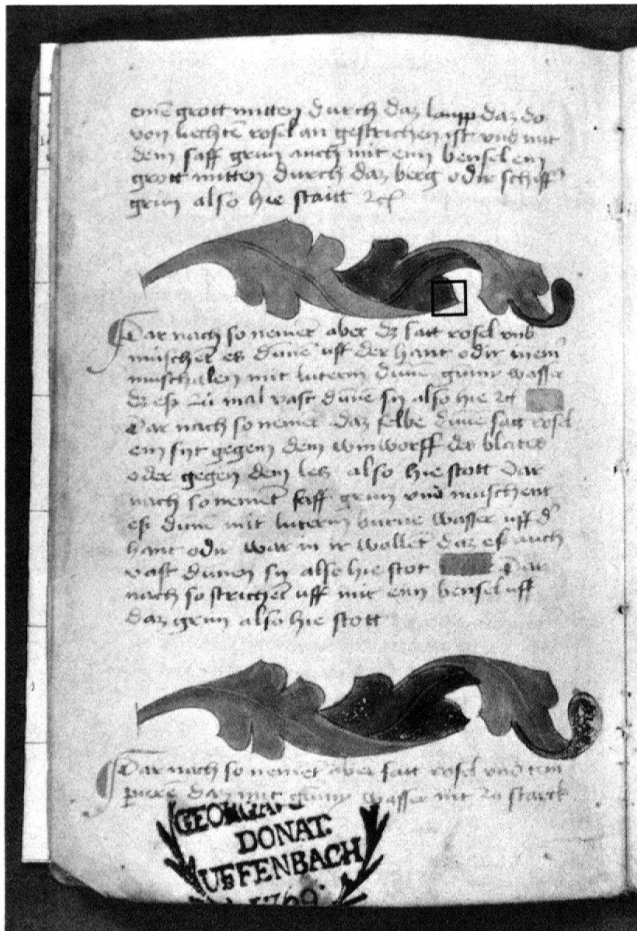 einē grott mitten durch daz laupp daz do
von liechtē rosel an gestrichen ist vnd mit
dem saff grun auch mit eim bensel ein
grott mitten durch daz berg odir schiff
grun also hie statt
Dar nach so nemet aber dz satt rosel vnd
muschet es dūne uff der hant odir
muschalen mit luterm dūne gumy wasser
dz eß zū mal vast dūne sij also hie
Dar nach so nemet daz selbe dūne satt rosel
ein sijt gegen dem des blates
oder gegen dem also hie stott Dar
nach so nemet saff grun vnd muschent
eß dūne mit luterm burne wasser uff d
hant odir war in ir wollet daz eß auch
vast dūnen sij also hie stot Dar
nach so strichet uff mit eim bensel uff
daz grun also hie stott
Dar nach so nemet aber satt rosel vnd tem
perirē daz mit gumy wasser nit zu starck
GEORG
DONAT.
UFFENBACH
1769.